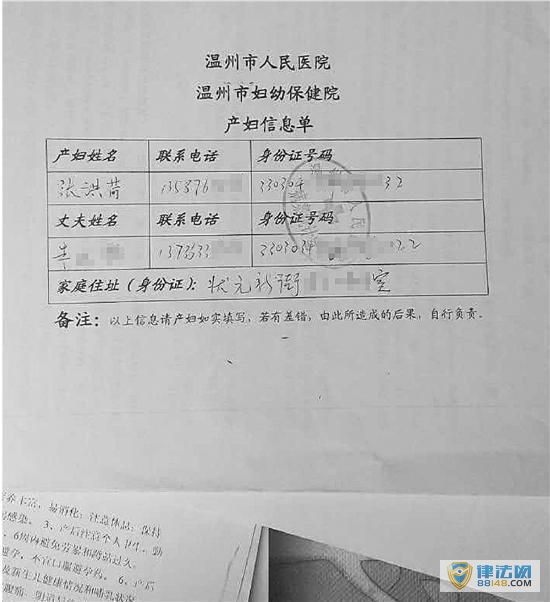 温州市人民医院
温州市妇幼保健院
产妇信息单
产妇姓名 联系电话 身份证号码
张洪 135876 330304 32
丈夫姓名 联系电话 身份证号码
330304 22
家庭住址（身份证）：状元新街 室
备注：以上信息请产妇如实填写，若有差错，由此所造成的后果，自行负责。
易消化；注意休息；保持
感染。 3、产后注意个人卫生，勤
6周内避免劳累和蹲站过久。
避孕，不宜口服避孕药。 6、产后
及新生儿健康情况和哺乳状况
律法网
88148.COM